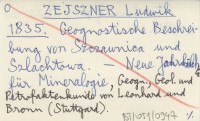 ZEJSZNER Ludwik
1835. Geognostische Beschrei-
bung von Szczawnica und
Szlachtowa. — Neue Jahrbüch.
für Mineralogie, Geogn., Geol. und
Petrofaktenkunde von Leonhard und
Bronn (Stuttgart).